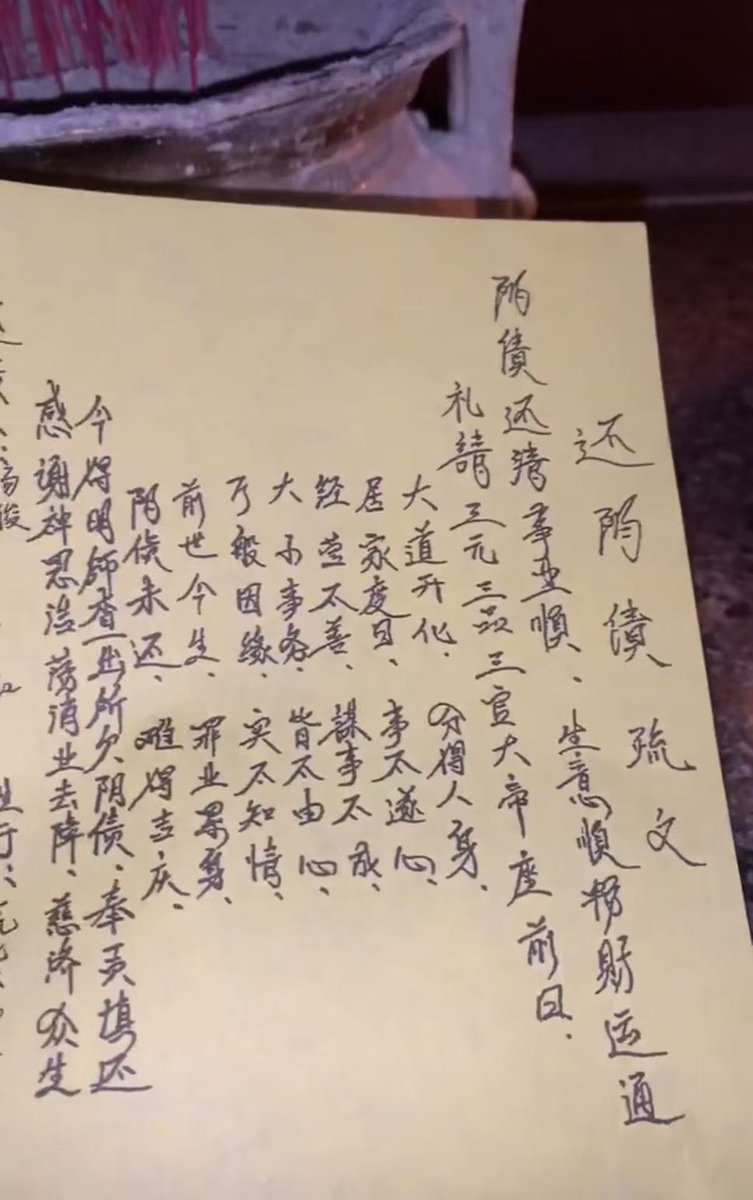 还阴债疏文
阴债还清事业顺、生意顺畅财运通
礼請三元三品三官大帝座前曰、
大道开化、分得人身、
居家度日、事不遂心、
经营不善、謀事不成、
大小事务、皆不由心、
万般因缘、实不知情、
前世今生、罪业累身、
阴债未还、难得吉庆、
今得明師查出所欠阴债、奉还填还
感謝神恩浩荡消业去障、慈济众生